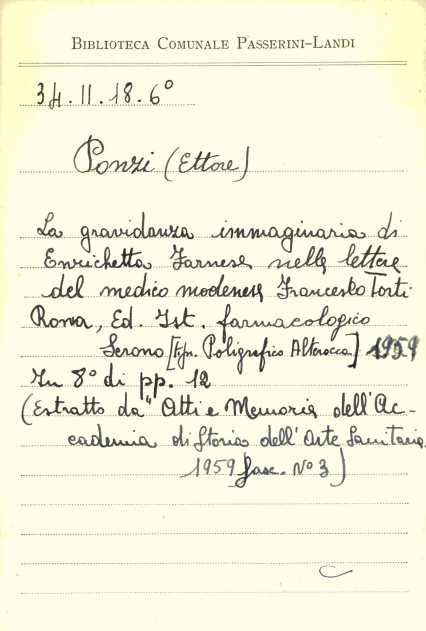 BIBLIOTECA COMUNALE PASSERINI-LANDI
34.II.18.6°
Ponzi (Ettore)
La gravidanza immaginaria di
Enrichetta Farnese nelle lettere
del medico modenese Francesco Torti
Roma, Ed. Ist. farmacologico
Serono [tip. Poligrafico Alterocca] 1959
In 8° di pp. 12
(Estratto da "Atti e Memorie dell'Ac-
cademia di Storia dell'Arte Sanitaria.
1959 fasc. N° 3)
C